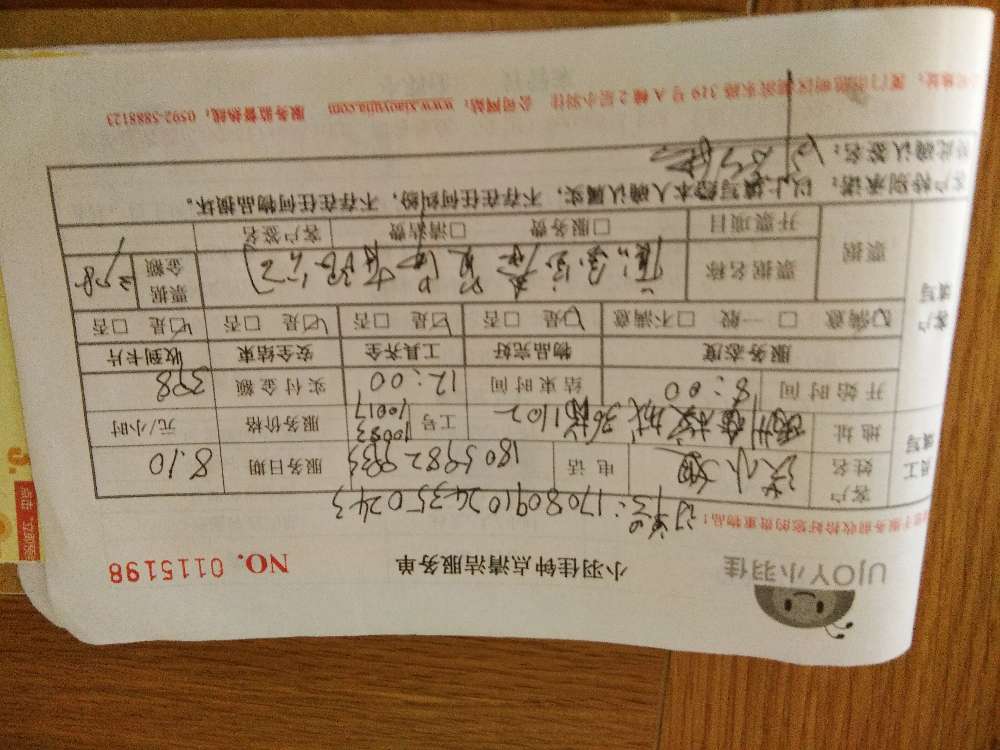 UJOY小羽佳
小羽佳钟点清洁服务单
NO. 0115198
服务前收检好您的贵重物品!
订单:1708091026350243
员工填写
客户姓名 洪小姐 电话 18059829335 服务日期 8.10
地址 36 1102 工号 10083 10017 服务价格 元/小时
开始时间 8:00 结束时间 12:00 实付金额 398
客户填写
服务态度 物品完好 工具齐全 安全结束 收到卡片
☑满意 □一般 □不满意 ☑是 □否 ☑是 □否 ☑是 □否 ☑是 □否
票据 票据名称 有限公司 票据金额 398
开票项目 □服务费 □清洁费 客户签名
客户特别承诺: 以上填写经本人确认属实,不存在任何纠纷,不存在任何物品损坏。
特此确认签名:
319号A幢2层小羽佳 公司网站:www.xiaoyujia.com 服务监督热线:0592-5888123